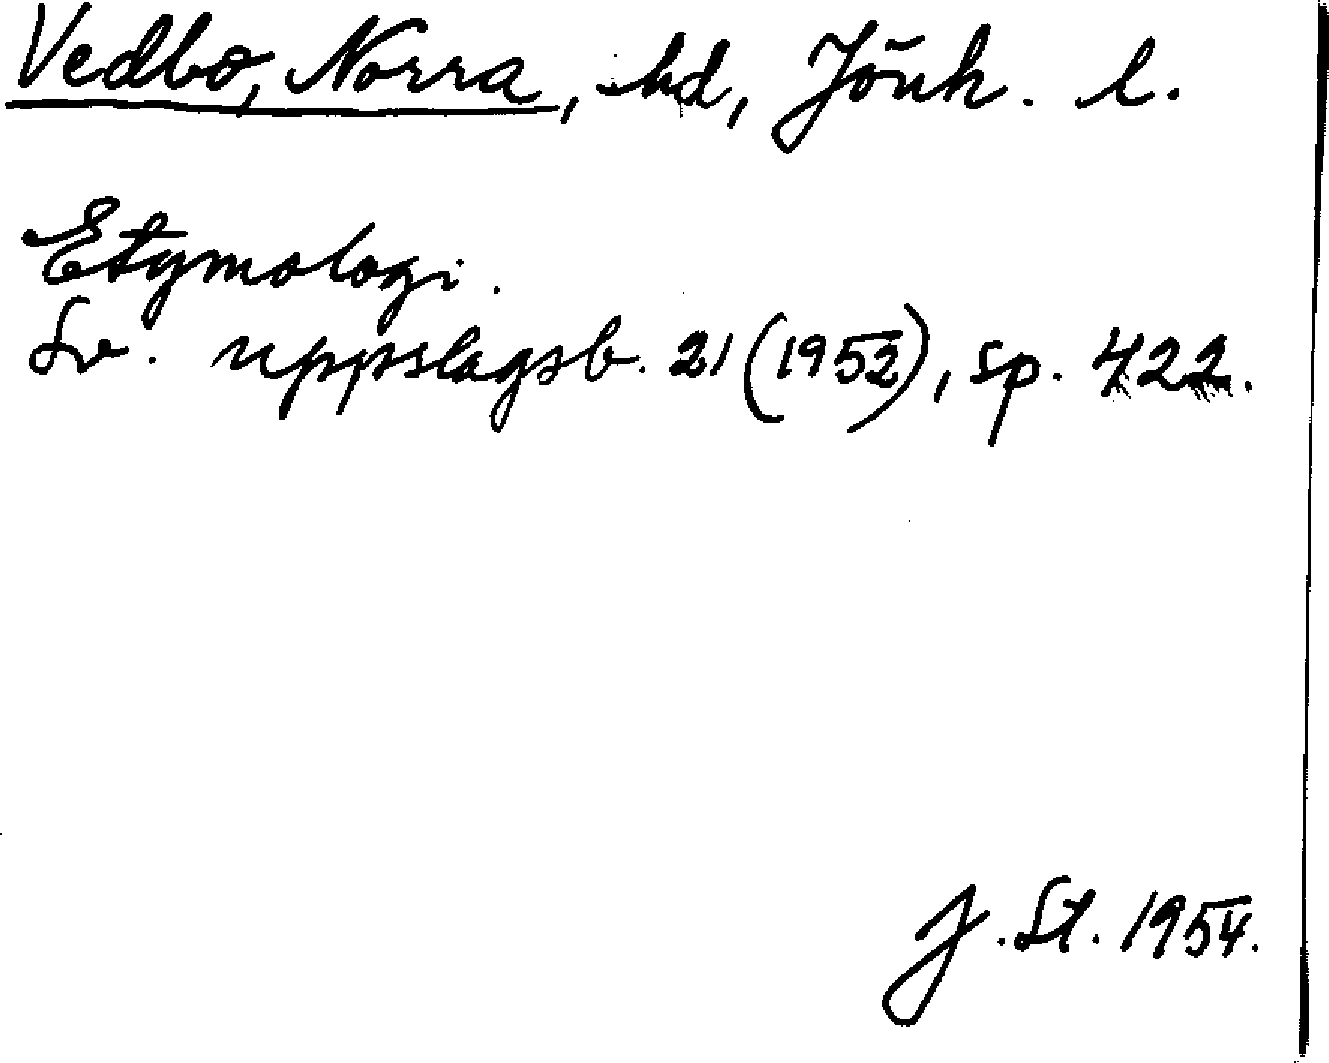 Vedbo, Norra, hd, Jönk. l.
Etymologi.
Sv. uppslagsb. 21 (1952), sp. 422.
J. St. 1954.